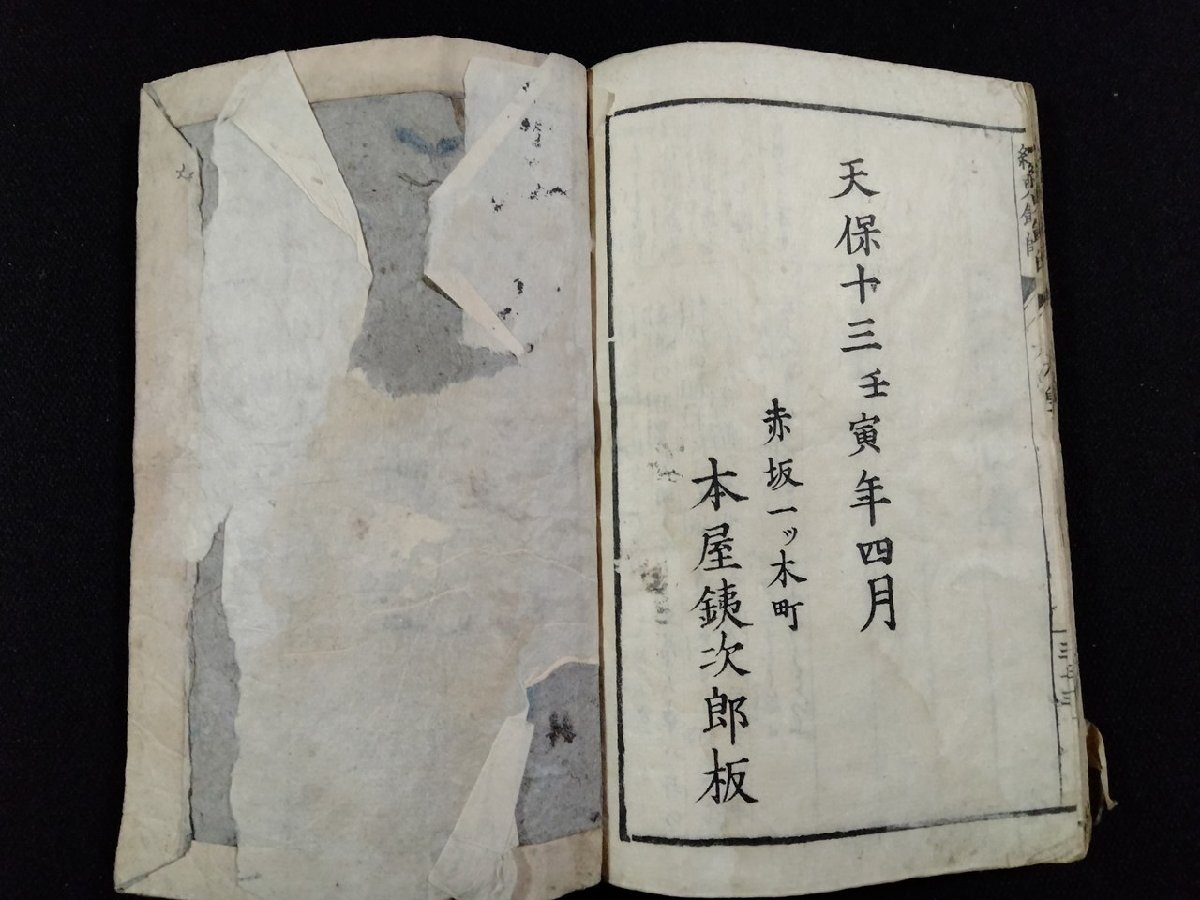 天保十三壬寅年四月
赤坂一ッ木町
本屋銕次郎板